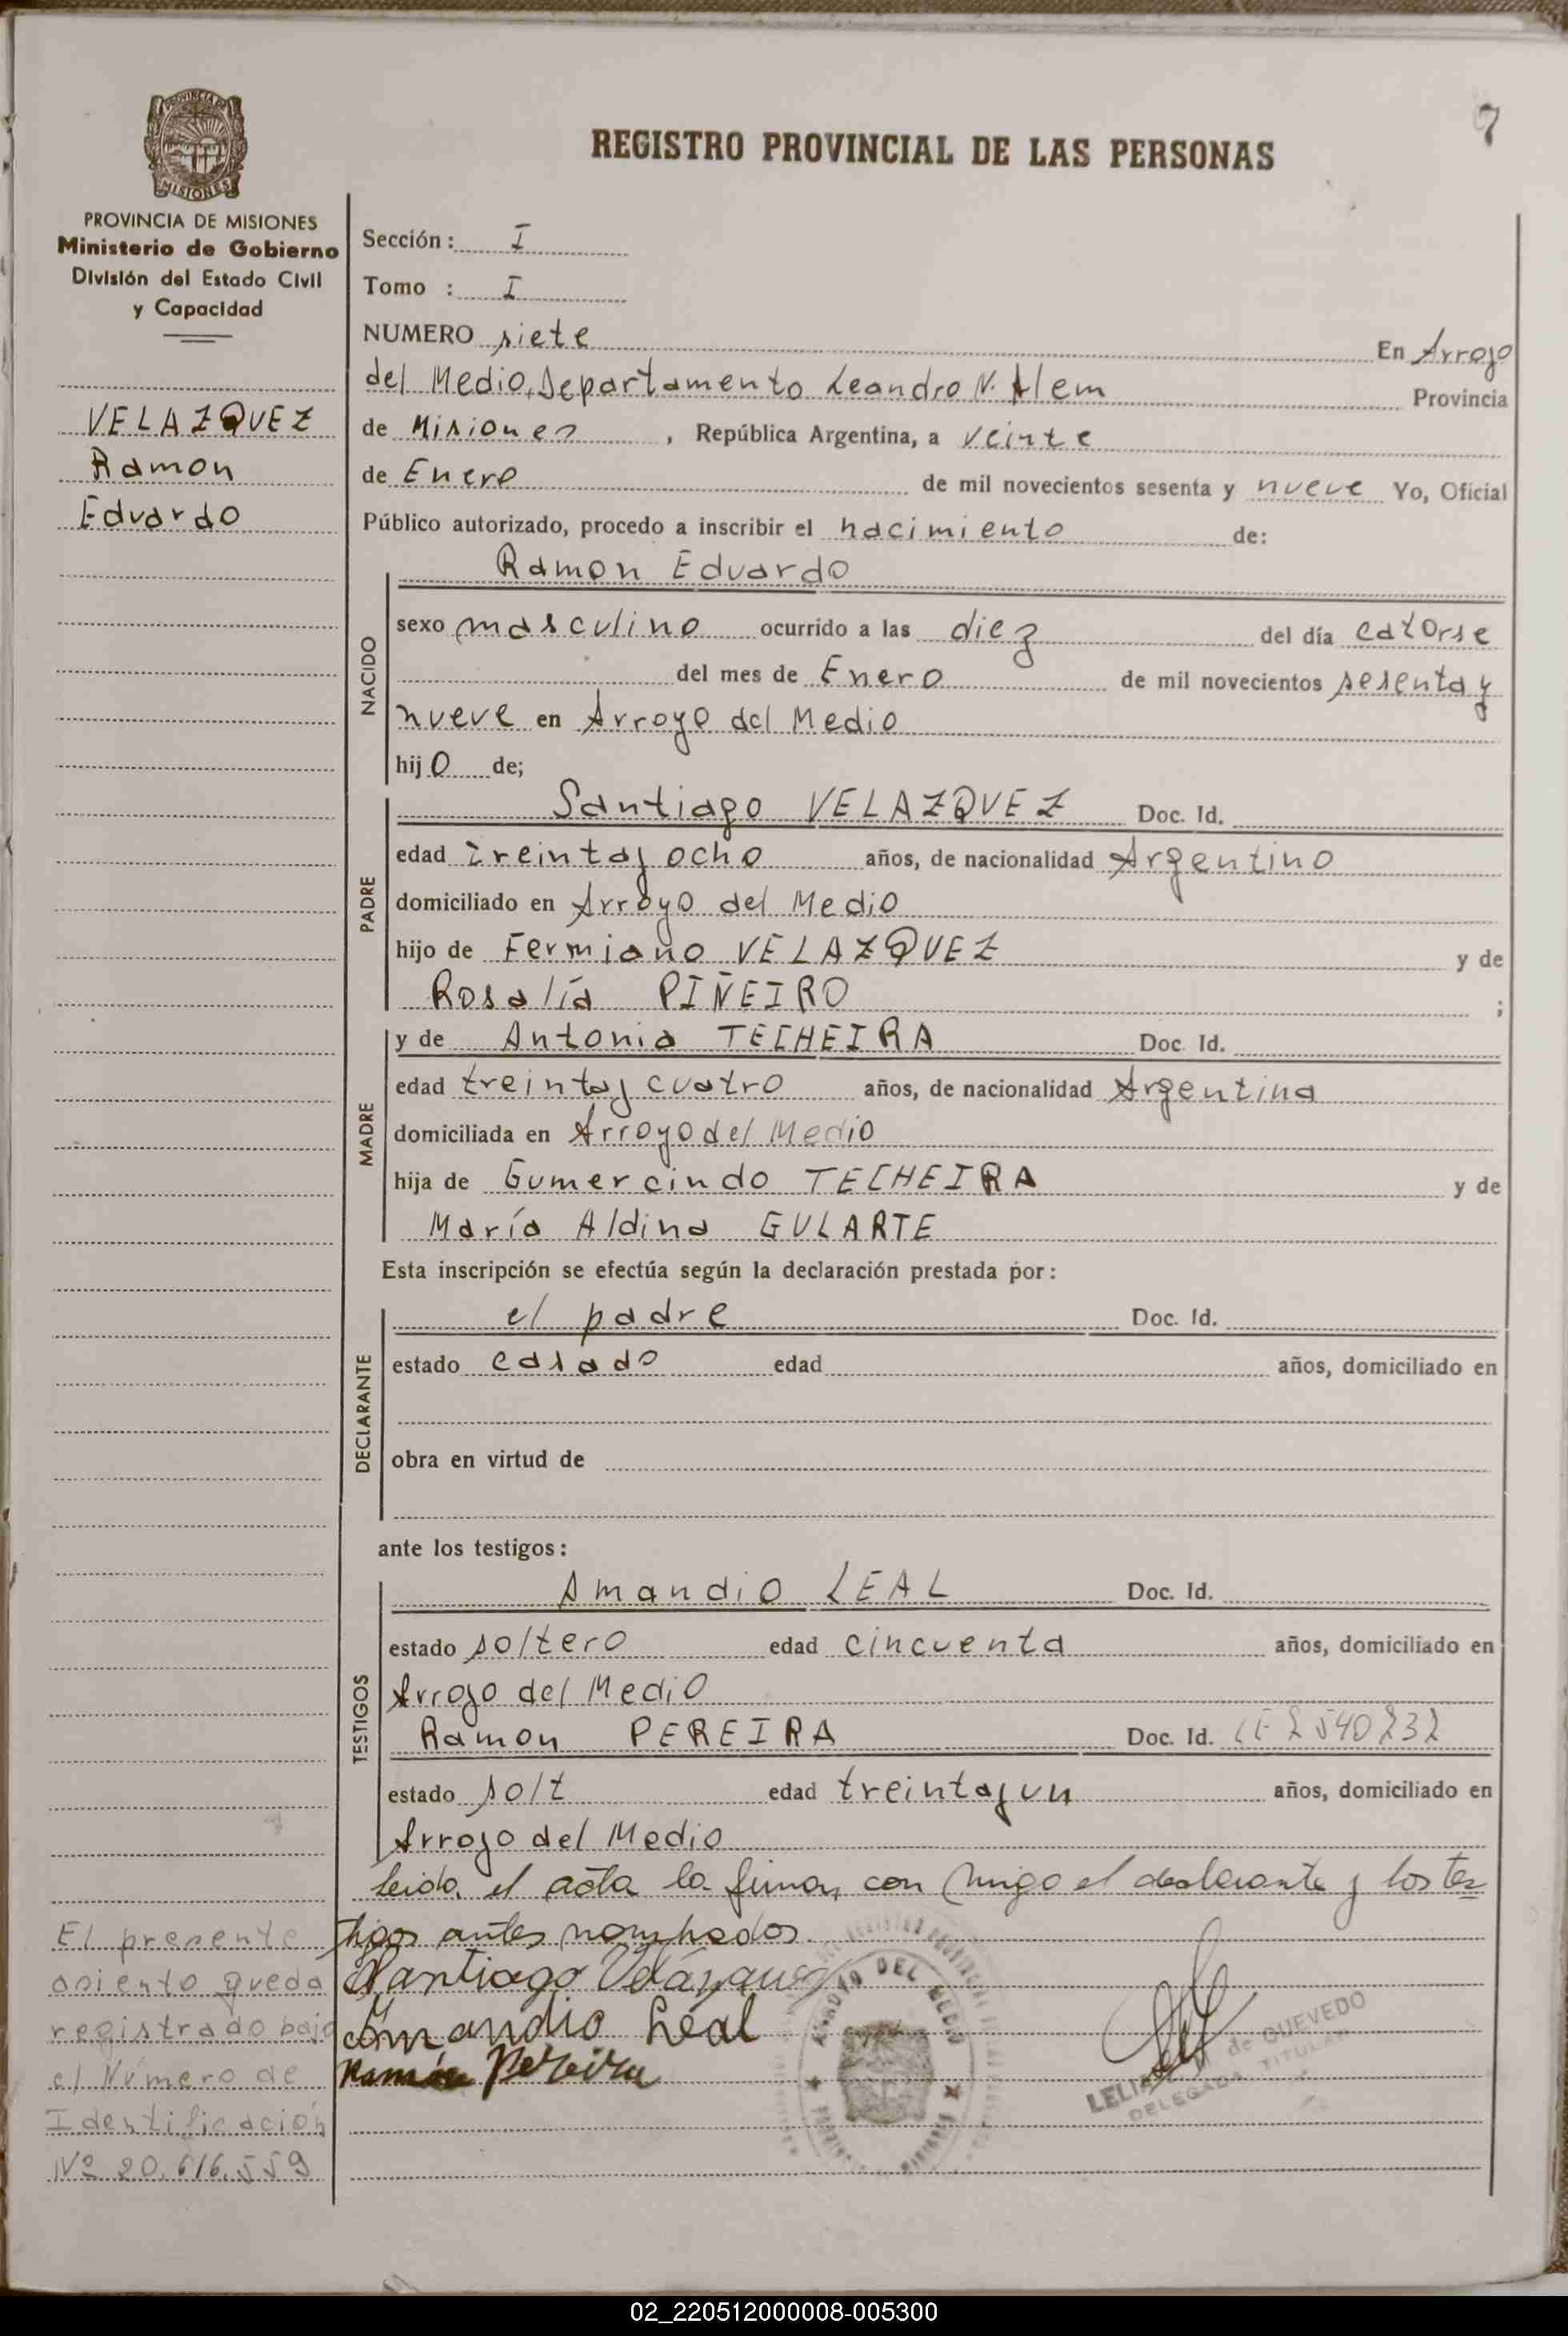 7
REGISTRO PROVINCIAL DE LAS PERSONAS
PROVINCIA DE MISIONES
MISIONES
PROVINCIA DE MISIONES
Ministerio de Gobierno
División del Estado Civil
y Capacidad
VELAZQUEZ
Ramon
Eduardo
Sección: I
Tomo : I
NUMERO siete En Arroyo
del Medio, Departamento Leandro N. Alem Provincia
de Misiones , República Argentina, a veinte
de Enero de mil novecientos sesenta y nueve Yo, Oficial
Público autorizado, procedo a inscribir el nacimiento de:
NACIDO
Ramon Eduardo
sexo masculino ocurrido a las diez del día catorse
del mes de Enero de mil novecientos sesenta y
nueve en Arroyo del Medio
hijo de;
PADRE
Santiago VELAZQUEZ Doc. Id.
edad treinta y ocho años, de nacionalidad Argentino
domiciliado en Arroyo del Medio
hijo de Fermiano VELAZQUEZ y de
Rosalía PIÑEIRO ;
MADRE
y de Antonia TECHEIRA Doc. Id.
edad treinta y cuatro años, de nacionalidad Argentina
domiciliada en Arroyo del Medio
hija de Gumercindo TECHEIRA y de
María Aldina GULARTE
Esta inscripción se efectúa según la declaración prestada por:
DECLARANTE
el padre Doc. Id.
estado casado edad años, domiciliado en
obra en virtud de
ante los testigos:
TESTIGOS
Amandio LEAL Doc. Id.
estado soltero edad cincuenta años, domiciliado en
Arroyo del Medio
Ramon PEREIRA Doc. Id. LE 2540232
estado solt edad treinta y un años, domiciliado en
Arroyo del Medio
leida el acta la firman con migo el declarante y los tes
tigos antes nombrados.
Santiago Velázquez
Amandio Leal
Ramón Pereira
El presente
asiento queda
registrado bajo
el Número de
Identificación
Nº 20.616.559
ARROYO DEL MEDIO
de QUEVEDO
DELEGADA TITULAR
02_220512000008-005300